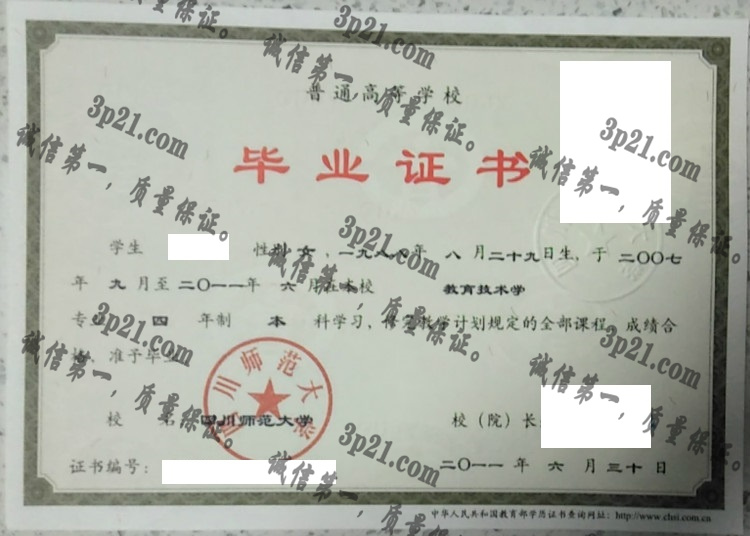 普通高等学校
毕业证书
学生 性别 女 ,一九八八年 八 月二十九日生, 于 二〇〇七
年 九 月至二〇一一年 六 月在本校 教育技术学
专业 四 年制 本 科学习, 修完教学计划规定的全部课程, 成绩合
格, 准予毕业
校 名: 四川师范大学 校(院)长:
证书编号: 二〇一一 年 六 月 三十 日
中华人民共和国教育部学历证书查询网址: http://www.chsi.com.cn
四川师范大学
3p21.com
诚信第一,质量保证。
3p21.com
诚信第一,质量保证。
3p21.com
诚信第一,质量保证。
3p21.com
诚信第一,质量保证。
3p21.com
诚信第一,质量保证。
3p21.com
诚信第一,质量保证。
3p21.com
诚信第一,质量保证。